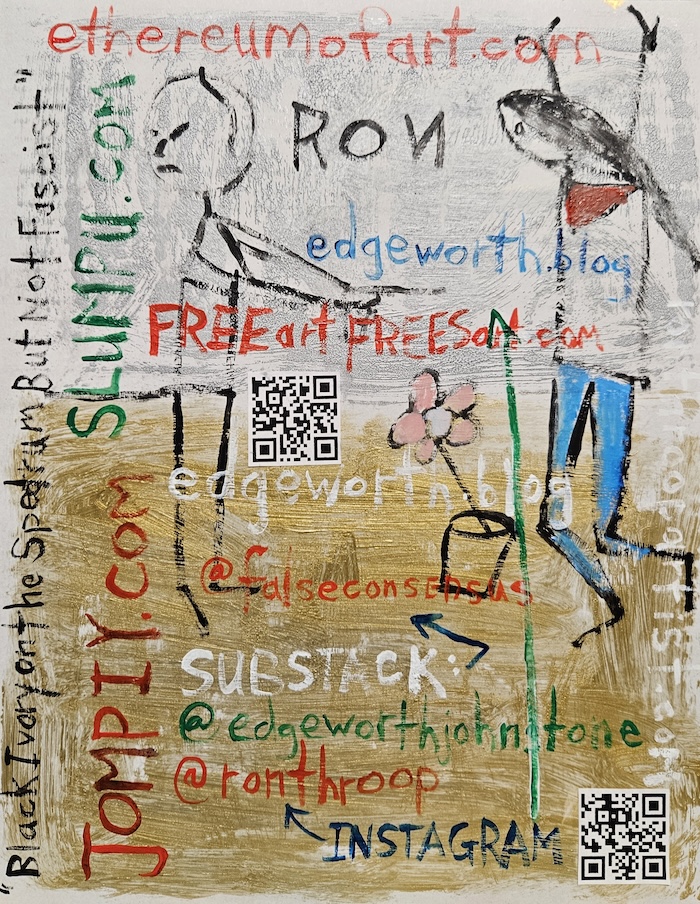 ethereumofart.com
RON
edgeworth.blog
FREEart FREESart.com
edgeworth.blog
@falseconsensus
SUBSTACK:
@edgeworthjohnstone
@ronthroop
INSTAGRAM
SLUMPU.com
JOMPIY.com
"Black Ivory on the Spectrum But Not Fascist"